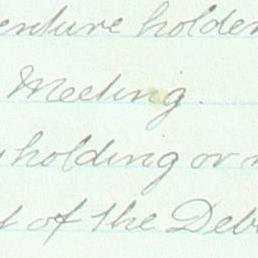 enture holder
Meeting.
holding or
of the Deb